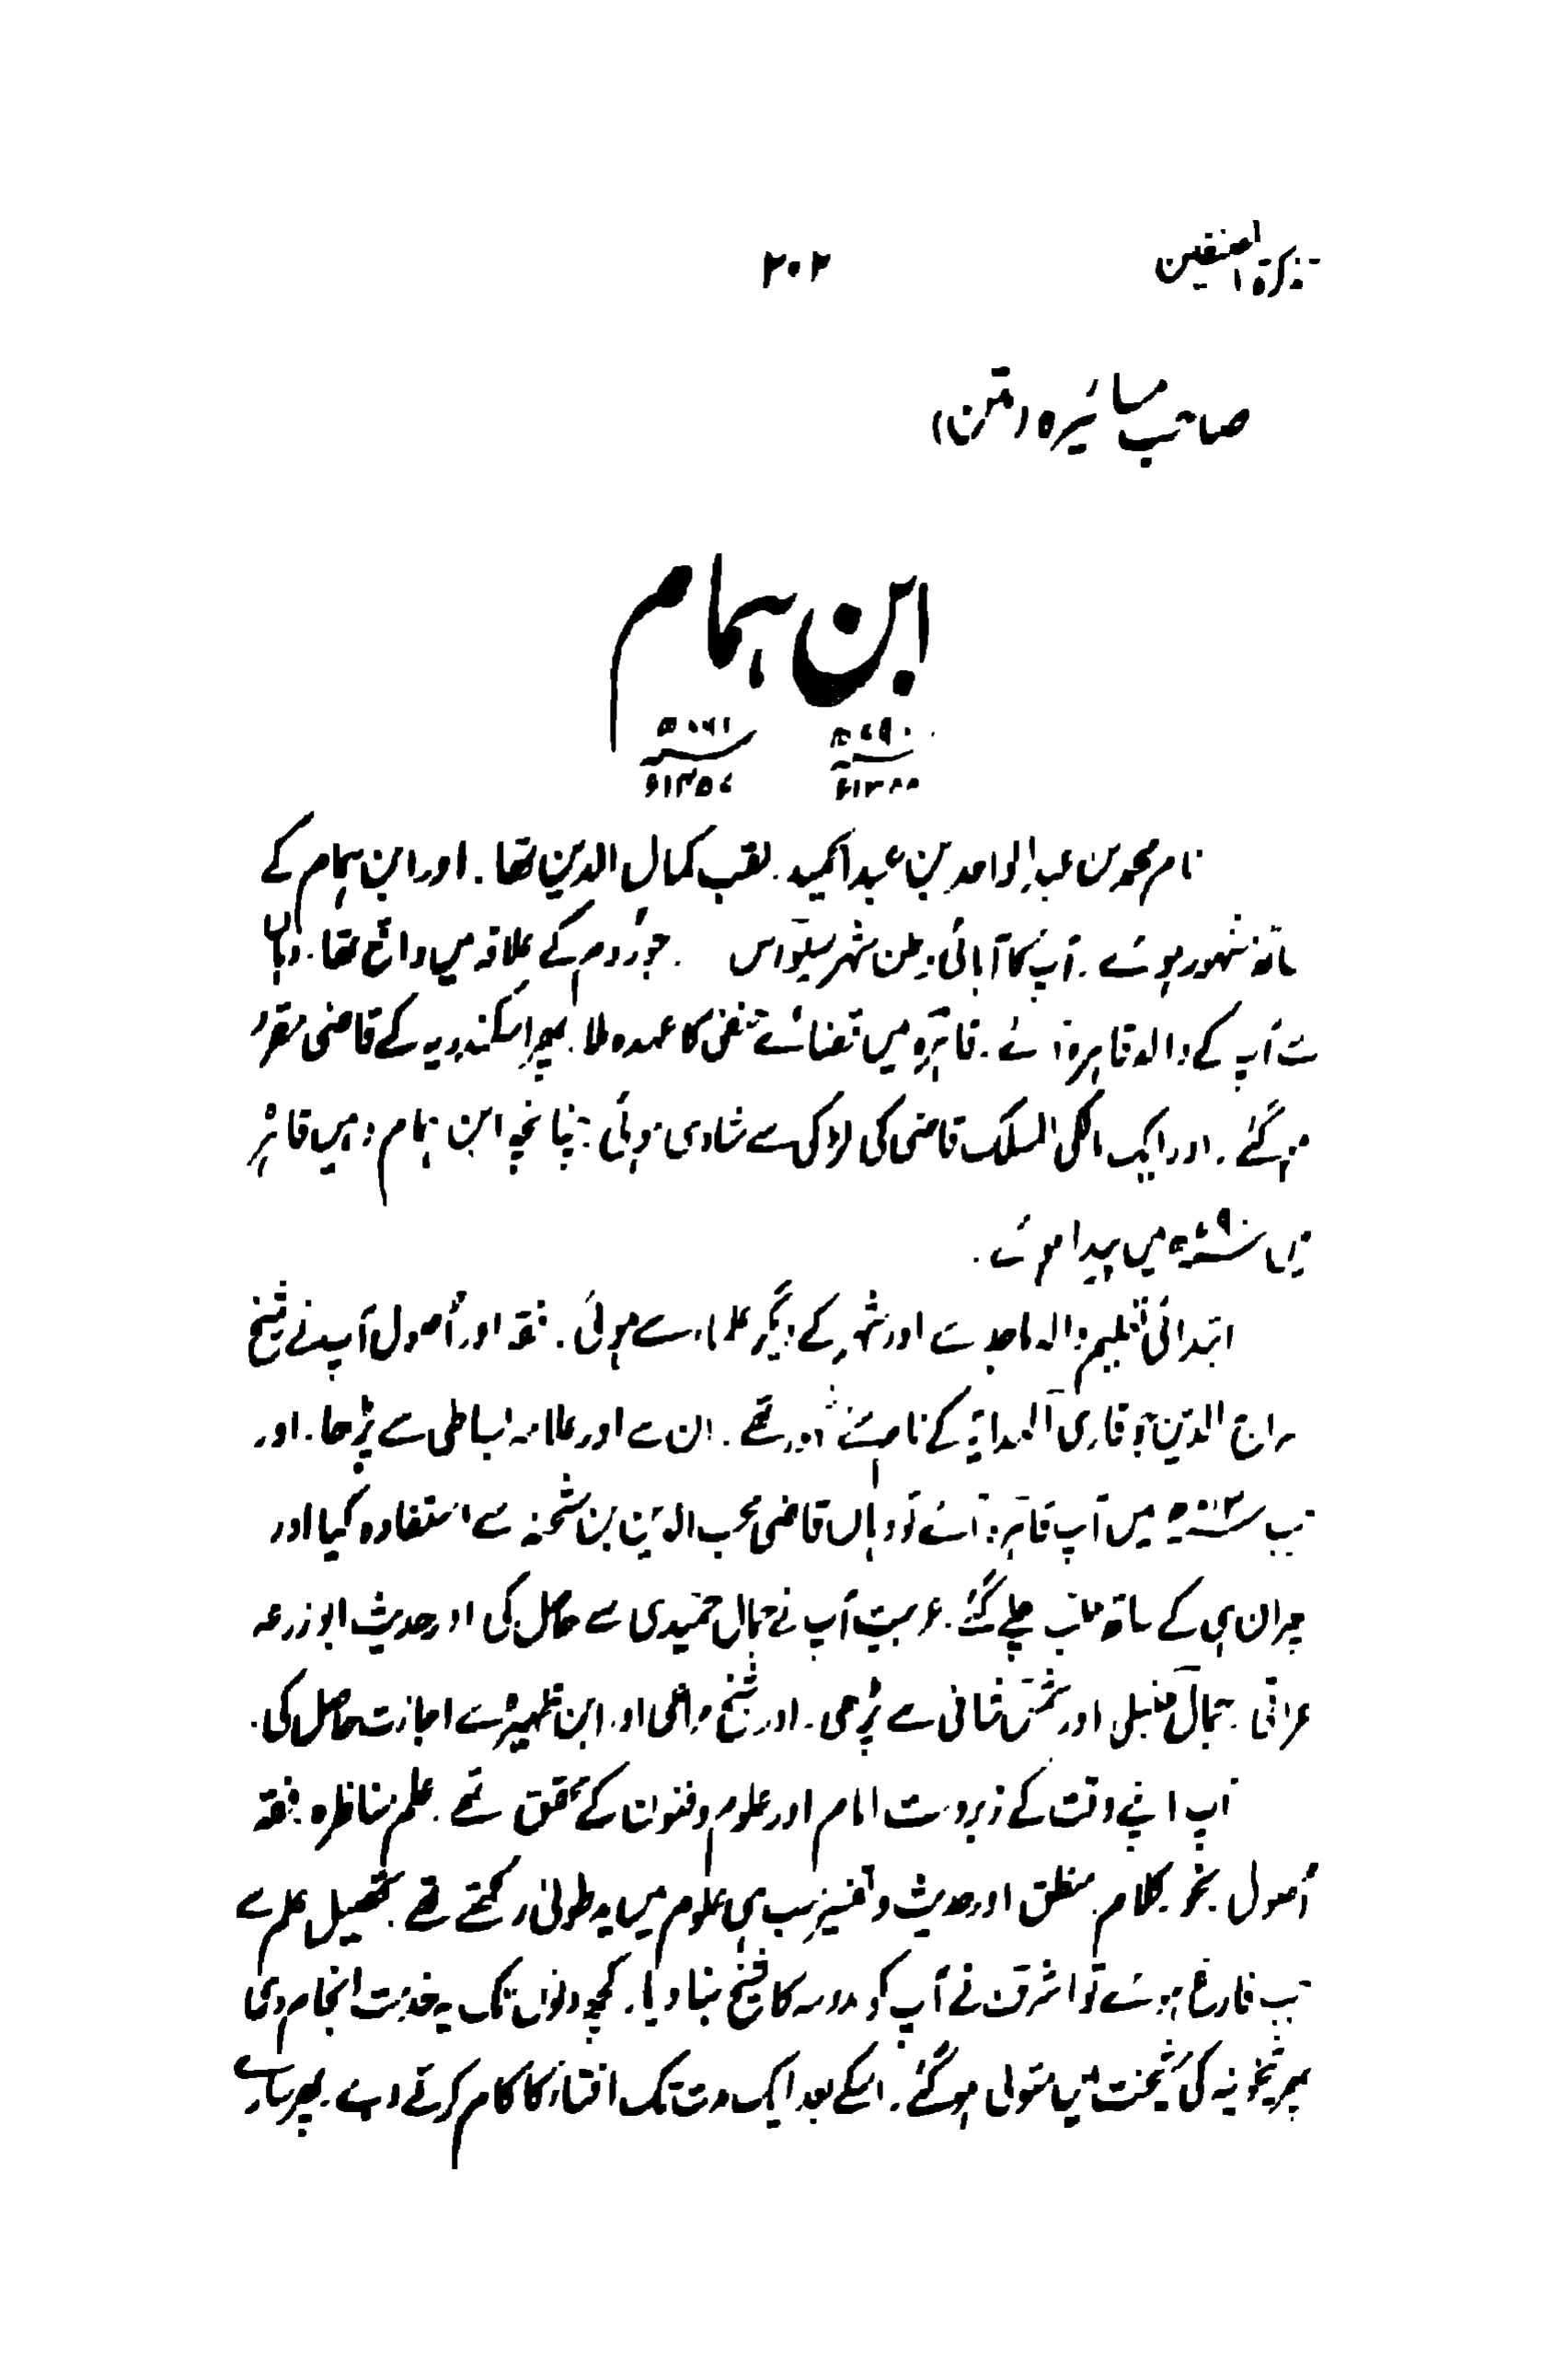 تذکرۃ المصنفین ۲۰۲
صاحب مسائرہ (متن)
ابن ہمام
۷۹۰ھ ۸۶۱ھ
۱۳۸۸ء ۱۴۵۷ء
نام محمد بن عبدالواحد بن عبدالحمید . لقب کمال الدین تھا . اور ابن ہمام کے
ساتھ مشہور ہوئے . آپ کا آبائی وطن شہر سیواس . جو روم کے علاقہ میں واقع تھا . وہاں
سے آپ کے والد قاہرہ آئے . قاہرہ میں قضائے حنفی کا عہدہ ملا . پھر اسکندریہ کے قاضی مقرر
ہوگئے . اور ایک مالکی المسلک قاضی کی لڑکی سے شادی ہوئی : چنانچہ ابن ہمام وہیں قاہرہ
میں ۷۹۰ھ میں پیدا ہوئے .
ابتدائی تعلیم والد ماجد سے اور شہر کے دیگر علماء سے ہوئی . فقہ اور أصول آپ نے شیخ
سراج الدین جو قاری الہدایہ کے نام سے مشہور تھے . ان سے اور علامہ بساطی سے پڑھا . اور
جب میں آپ قاہرہ آئے تو وہاں قاضی محب الدین بن شحنہ سے استفادہ کیا اور
پھر ان ہی کے ساتھ حلب چلے گئے . عربیت آپ نے جمال حمیدی سے حاصل کی اور حدیث ابو زرعہ
عراقی . جمال حنبلی اور شمس شانی سے پڑھی . اور شیخ مراغی اور ابن ظہیرہ سے اجازت حاصل کی .
آپ اپنے وقت کے زبردست امام اور علوم وفنون کے محقق تھے . علم مناظرہ . فقہ
أصول . نحو . کلام . منطق اور حدیث وتفسیر سب ہی علوم میں ید طولیٰ رکھتے تھے . تحصیل علم سے
جب فارغ ہوئے تو اشرف نے آپ کو مدرسہ کا شیخ بنا دیا . کچھ دنوں تک یہ خدمت انجام دی
پھر شیخونیہ کی مشیخت پر متولی ہوگئے . اسکے بعد ایک مدت تک افتاء کا کام کرتے رہے . پھر سارے